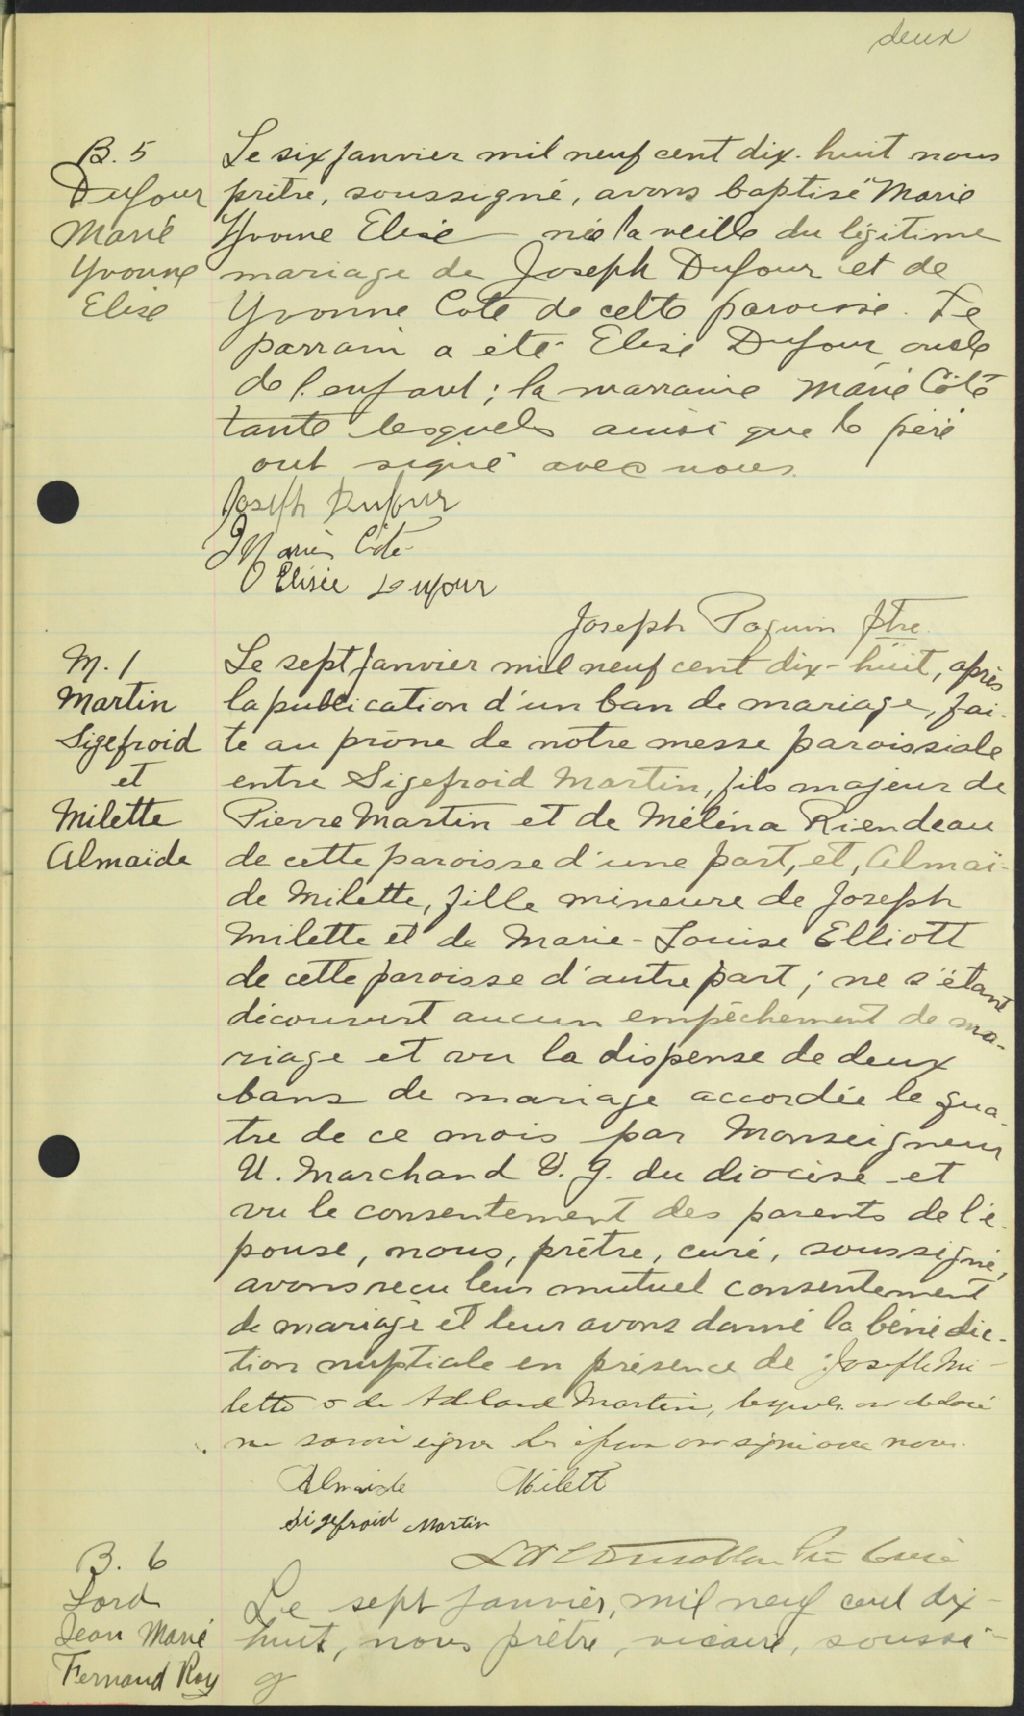 deux
B. 5
Dufour
Marie
Yvonne
Elise
Le six janvier mil neuf cent dix-huit nous
prêtre, soussigné, avons baptisé Marie
Yvonne Elise née la veille du légitime
mariage de Joseph Dufour et de
Yvonne Coté de cette paroisse. Le
parrain a été Elisé Dufour oncle
de l'enfant; la marraine Marie Côté
tante lesquels ainsi que le père
ont signé avec nous.
Joseph Dufour
Marie Côté
Elisée Dufour
Joseph Paquin ptre.
M. 1
Martin
Sigefroid
et
Milette
Almaïde
Le sept janvier mil neuf cent dix-huit, après
la publication d'un ban de mariage, fai-
te au prône de notre messe paroissiale
entre Sigefroid Martin, fils majeur de
Pierre Martin et de Mélina Riendeau
de cette paroisse d'une part, et, Almaï-
de Milette, fille mineure de Joseph
Milette et de Marie-Louise Elliott
de cette paroisse d'autre part; ne s'étant
découvert aucun empêchement de ma-
riage et vu la dispense de deux
bans de mariage accordée le qua-
tre de ce mois par Monseigneur
U. Marchand V. G. du diocèse et
vu le consentement des parents de l'é-
pouse, nous, prêtre, curé, soussigné,
avons reçu leur mutuel consentement
de mariage et leur avons donné la bénédic-
tion nuptiale en présence de Joseph Mi-
lette & de Martin, lesquels ont déclaré
ne savoir signer les époux ont signé avec nous.
Almaide Milett
Sigefroid Martin
Ptre Curé
B. 6
Lord
Jean Marie
Fernand Roy
Le sept janvier, mil neuf cent dix-
huit, nous prêtre, vicaire, soussi-
g